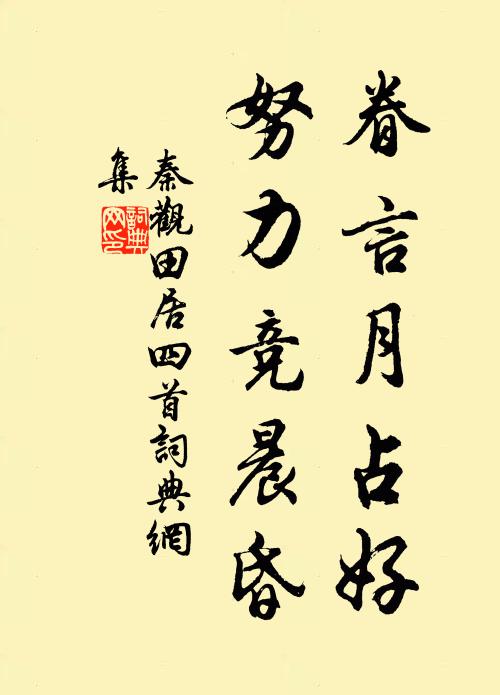 眷言月占好
努力竞晨昏
秦觀田居四首詞典網
集
詞典
网印